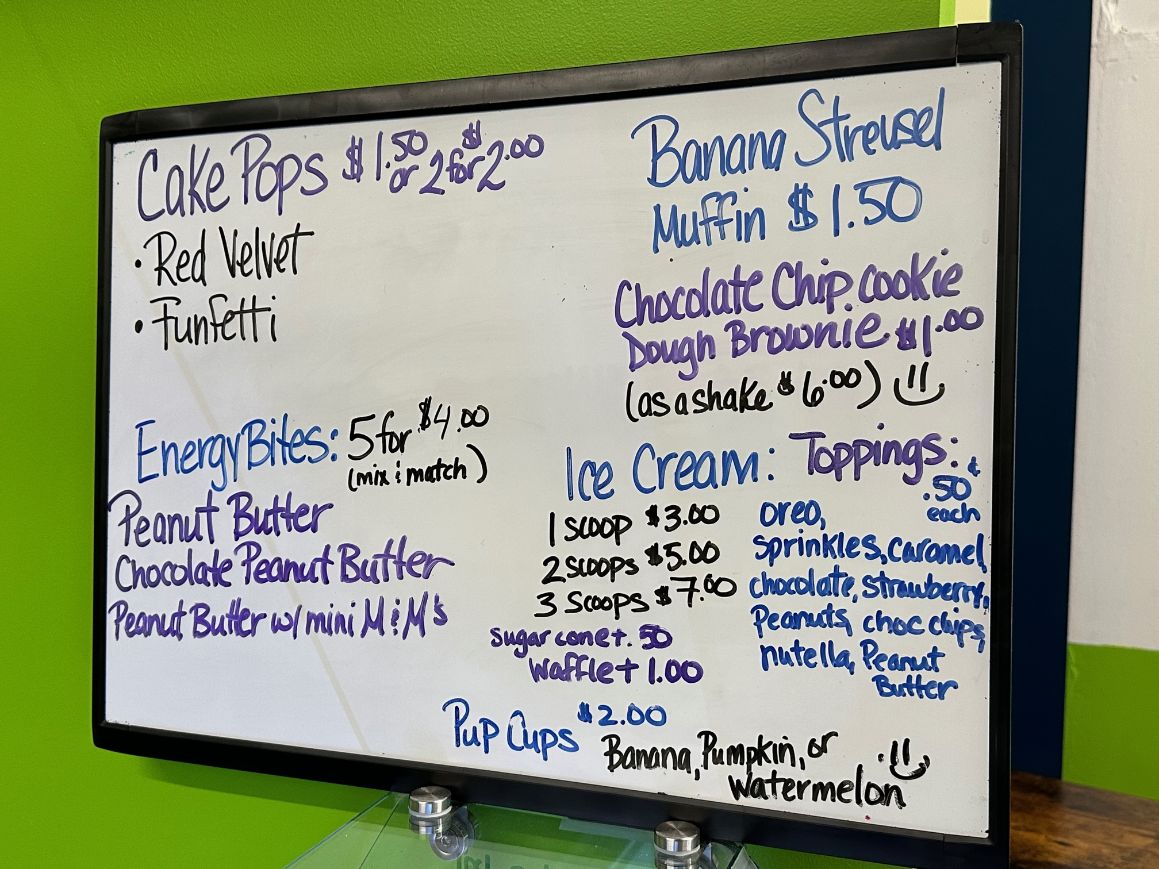 Cake Pops $1.50 or 2 for $2.00
• Red Velvet
• Funfetti
Energy Bites: 5 for $4.00
(mix & match)
Peanut Butter
Chocolate Peanut Butter
Peanut Butter w/ mini M&M's
Banana Streusel
Muffin $1.50
Chocolate Chip cookie
Dough Brownie $1.00
(as a shake $6.00)
Ice Cream:
1 scoop $3.00
2 scoops $5.00
3 Scoops $7.00
Sugar cone +.50
Waffle + 1.00
Toppings:
.50¢
each
oreo,
sprinkles, caramel,
chocolate, strawberry,
Peanuts, choc chips,
nutella, Peanut
Butter
Pup Cups $2.00
Banana, Pumpkin, or
watermelon